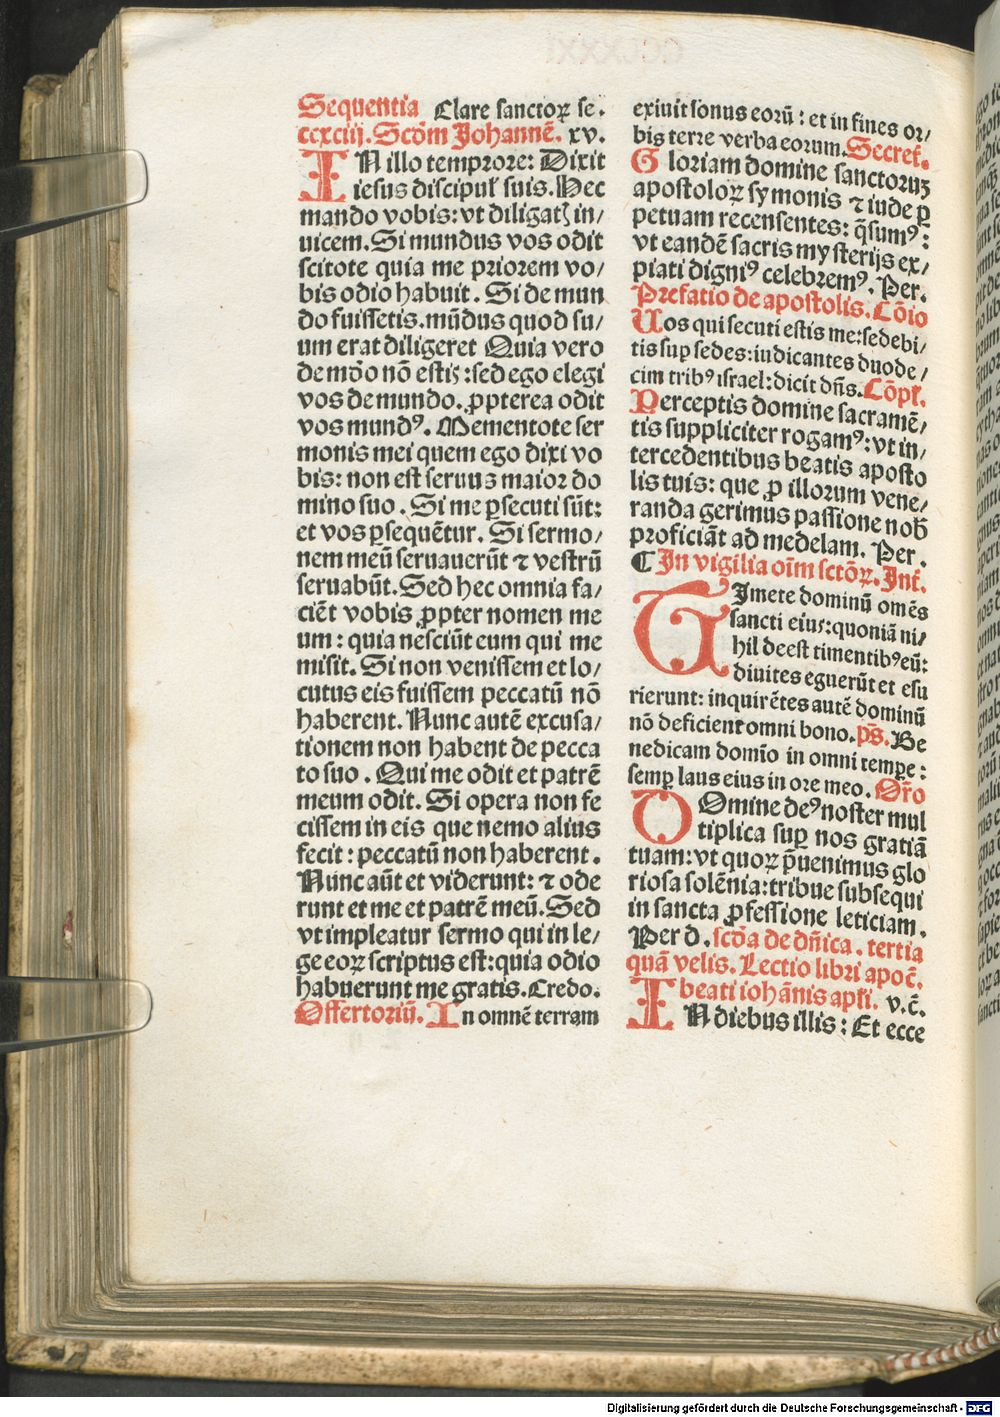 Sequentia Clare sanctoꝝ se.
ccxciij. Scðm Johannē. xv.
IN illo temprore: Dixit
iesus discipuł suis. Hec
mando vobis: vt diligatꝭ in/
uicem. Si mundus vos odit
scitote quia me priorem vo/
bis odio habuit. Si de mun
do fuissetis. mūdus quod su/
um erat diligeret Quia vero
de mōo nō estis: sed ego elegi
vos de mundo. ꝓpterea odit
vos mundꝰ. Mementote ser
monis mei quem ego dixi vo
bis: non est seruus maior do
mino suo. Si me ꝑsecuti sūt:
et vos ꝑsequētur. Si sermo/
nem meū seruauerūt ⁊ vestrū
seruabūt. Sed hec omnia fa/
ciēt vobis ꝓpter nomen me
um: quia nesciūt eum qui me
misit. Si non venissem et lo/
cutus eis fuissem peccatū nō
haberent. Nunc autē excusa/
tionem non habent de pecca
to suo. Qui me odit et patrē
meum odit. Si opera non fe
cissem in eis que nemo alius
fecit: peccatū non haberent.
Nunc aūt et viderunt: ⁊ ode
runt et me et patrē meū. Sed
vt impleatur sermo qui in le/
ge eoꝝ scriptus est: quia odio
habuerunt me gratis. Credo.
Offertoriū. In omnē terram
exiuit sonus eorū: et in fines or/
bis terre verba eorum. Secret̄.
Gloriam domine sanctoruꝫ
apostoloꝝ symonis ⁊ iude ꝑ
petuam recensentes: q̄sumꝰ:
vt eandē sacris mysterijs ex/
piati digniꝰ celebremꝰ. Per.
Prefatio de apostolis. Cōio
Uos qui secuti estis me: sedebi/
tis suꝑ sedes: iudicantes duode/
cim tribꝰ israel: dicit dn̄s. Cōpł.
Perceptis domine sacramē/
tis suppliciter rogamꝰ: vt in/
tercedentibus beatis aposto
lis tuis: que ꝓ illorum vene/
randa gerimus passione nob̄
proficiāt ad medelam. Per.
¶ In vigilia oīm sctōꝝ. Int̄.
TImete dominū omēs
sancti eius: quoniā ni/
hil deest timentibꝰ eū:
diuites eguerūt et esu
rierunt: inquirētes autē dominū
nō deficient omni bono. ps̄. Be
nedicam domīo in omni tempꝛe:
semꝑ laus eius in ore meo. Or̄o
DOmine deꝰ noster mul
tiplica suꝑ nos gratiā
tuam: vt quoꝝ p̄uenimus glo
riosa solēnia: tribue subsequi
in sancta ꝓfessione leticiam.
Per d. scða de dn̄ica. tertia
quā velis. Lectio libri apoc̄.
beati iohānis apłi. v.c̄.
IN diebus illis: Et ecce
Digitalisierung gefördert durch die Deutsche Forschungsgemeinschaft - DFG